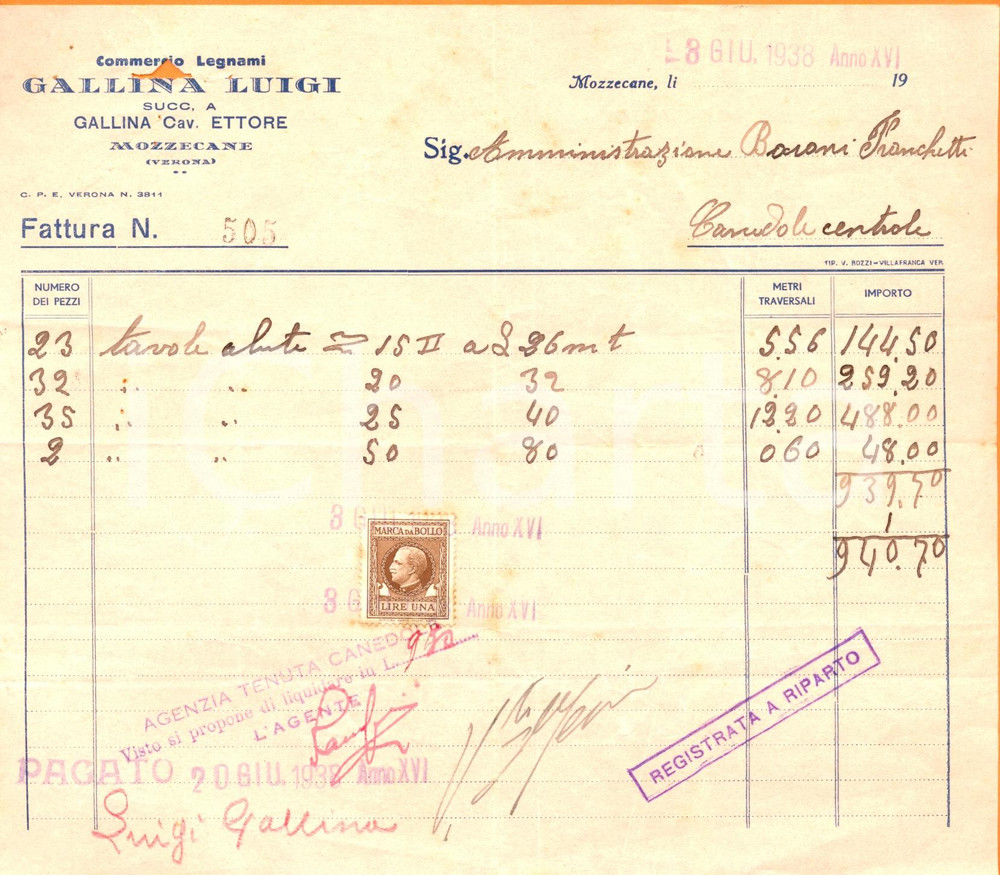 Commercio Legnami
GALLINA LUIGI
SUCC. A
GALLINA Cav. ETTORE
MOZZECANE
(VERONA)
C. P. E. VERONA N. 3811
Fattura N. 505
8 GIU. 1938 Anno XVI
Mozzecane, li 19
Sig. Amministrazione Baroni Franchetti
Canedole centrole
TIP. V. ROZZI - VILLAFRANCA VER.
NUMERO DEI PEZZI METRI TRAVERSALI IMPORTO
23 tavole abete 15 II a £ 26 mt 5.56 144.50
32 " " 20 32 8.10 259.20
35 " " 25 40 12.20 488.00
2 " " 50 80 0.60 48.00
939.70
1
940.70
8 GIU. Anno XVI
MARCA DA BOLLO
LIRE UNA
8 G Anno XVI
AGENZIA TENUTA CANEDO
Visto si propone di liquidare in L.
L'AGENTE
REGISTRATA A RIPARTO
PAGATO 20 GIU. 1938 Anno XVI
Luigi Gallina
iCharta